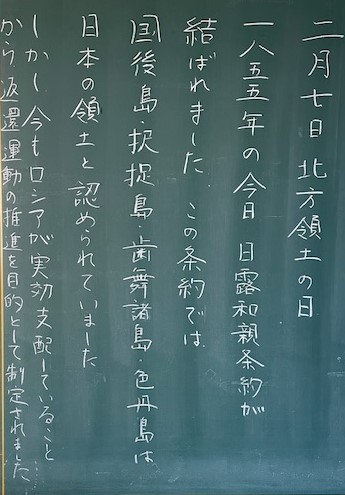 二月七日 北方領土の日
一八五五年の今日 日露和親条約が
結ばれました この条約では
国後島・択捉島・歯舞諸島・色丹島は
日本の領土と認められていました
しかし今もロシアが実効支配していること
から返還運動の推進を目的として制定されました